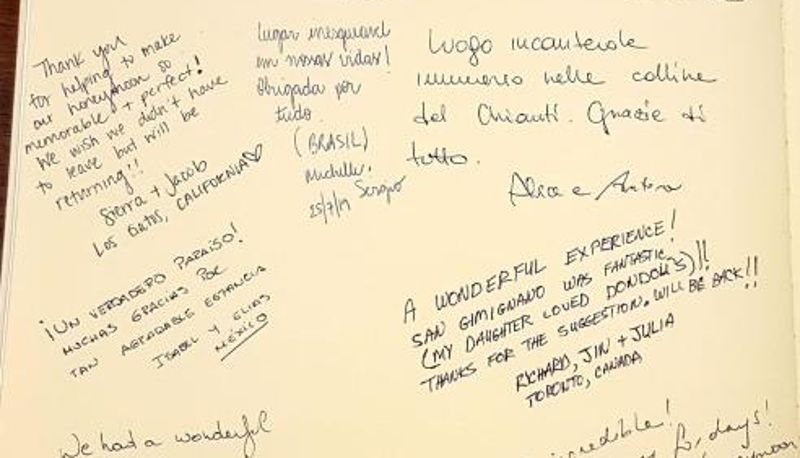 Thank you
for helping to make
our honeymoon so
memorable + perfect!
We wish we didn't have
to leave but will be
returning!!
Sierra + Jacob
LOS GATOS, CALIFORNIA♡
Lugar inesquecível
em nossas vidas!
Obrigada por
tudo.
(BRASIL)
Michelle,
Sergio
25/7/19
Luogo incantevole
immerso nelle colline
del Chianti. Grazie di
tutto.
Alice e
¡UN VERDADERO PARAÍSO!
MUCHAS GRACIAS POR
TAN AGRADABLE ESTANCIA
ISABEL Y ELIAS
MÉXICO
A WONDERFUL EXPERIENCE!
SAN GIMIGNANO WAS FANTASTIC
(MY DAUGHTER LOVED DONDOLI'S)!!
THANKS FOR THE SUGGESTION. WILL BE BACK!!
RICHARD, JIN + JULIA
TORONTO, CANADA
We had a wonderful
incredible!
days!